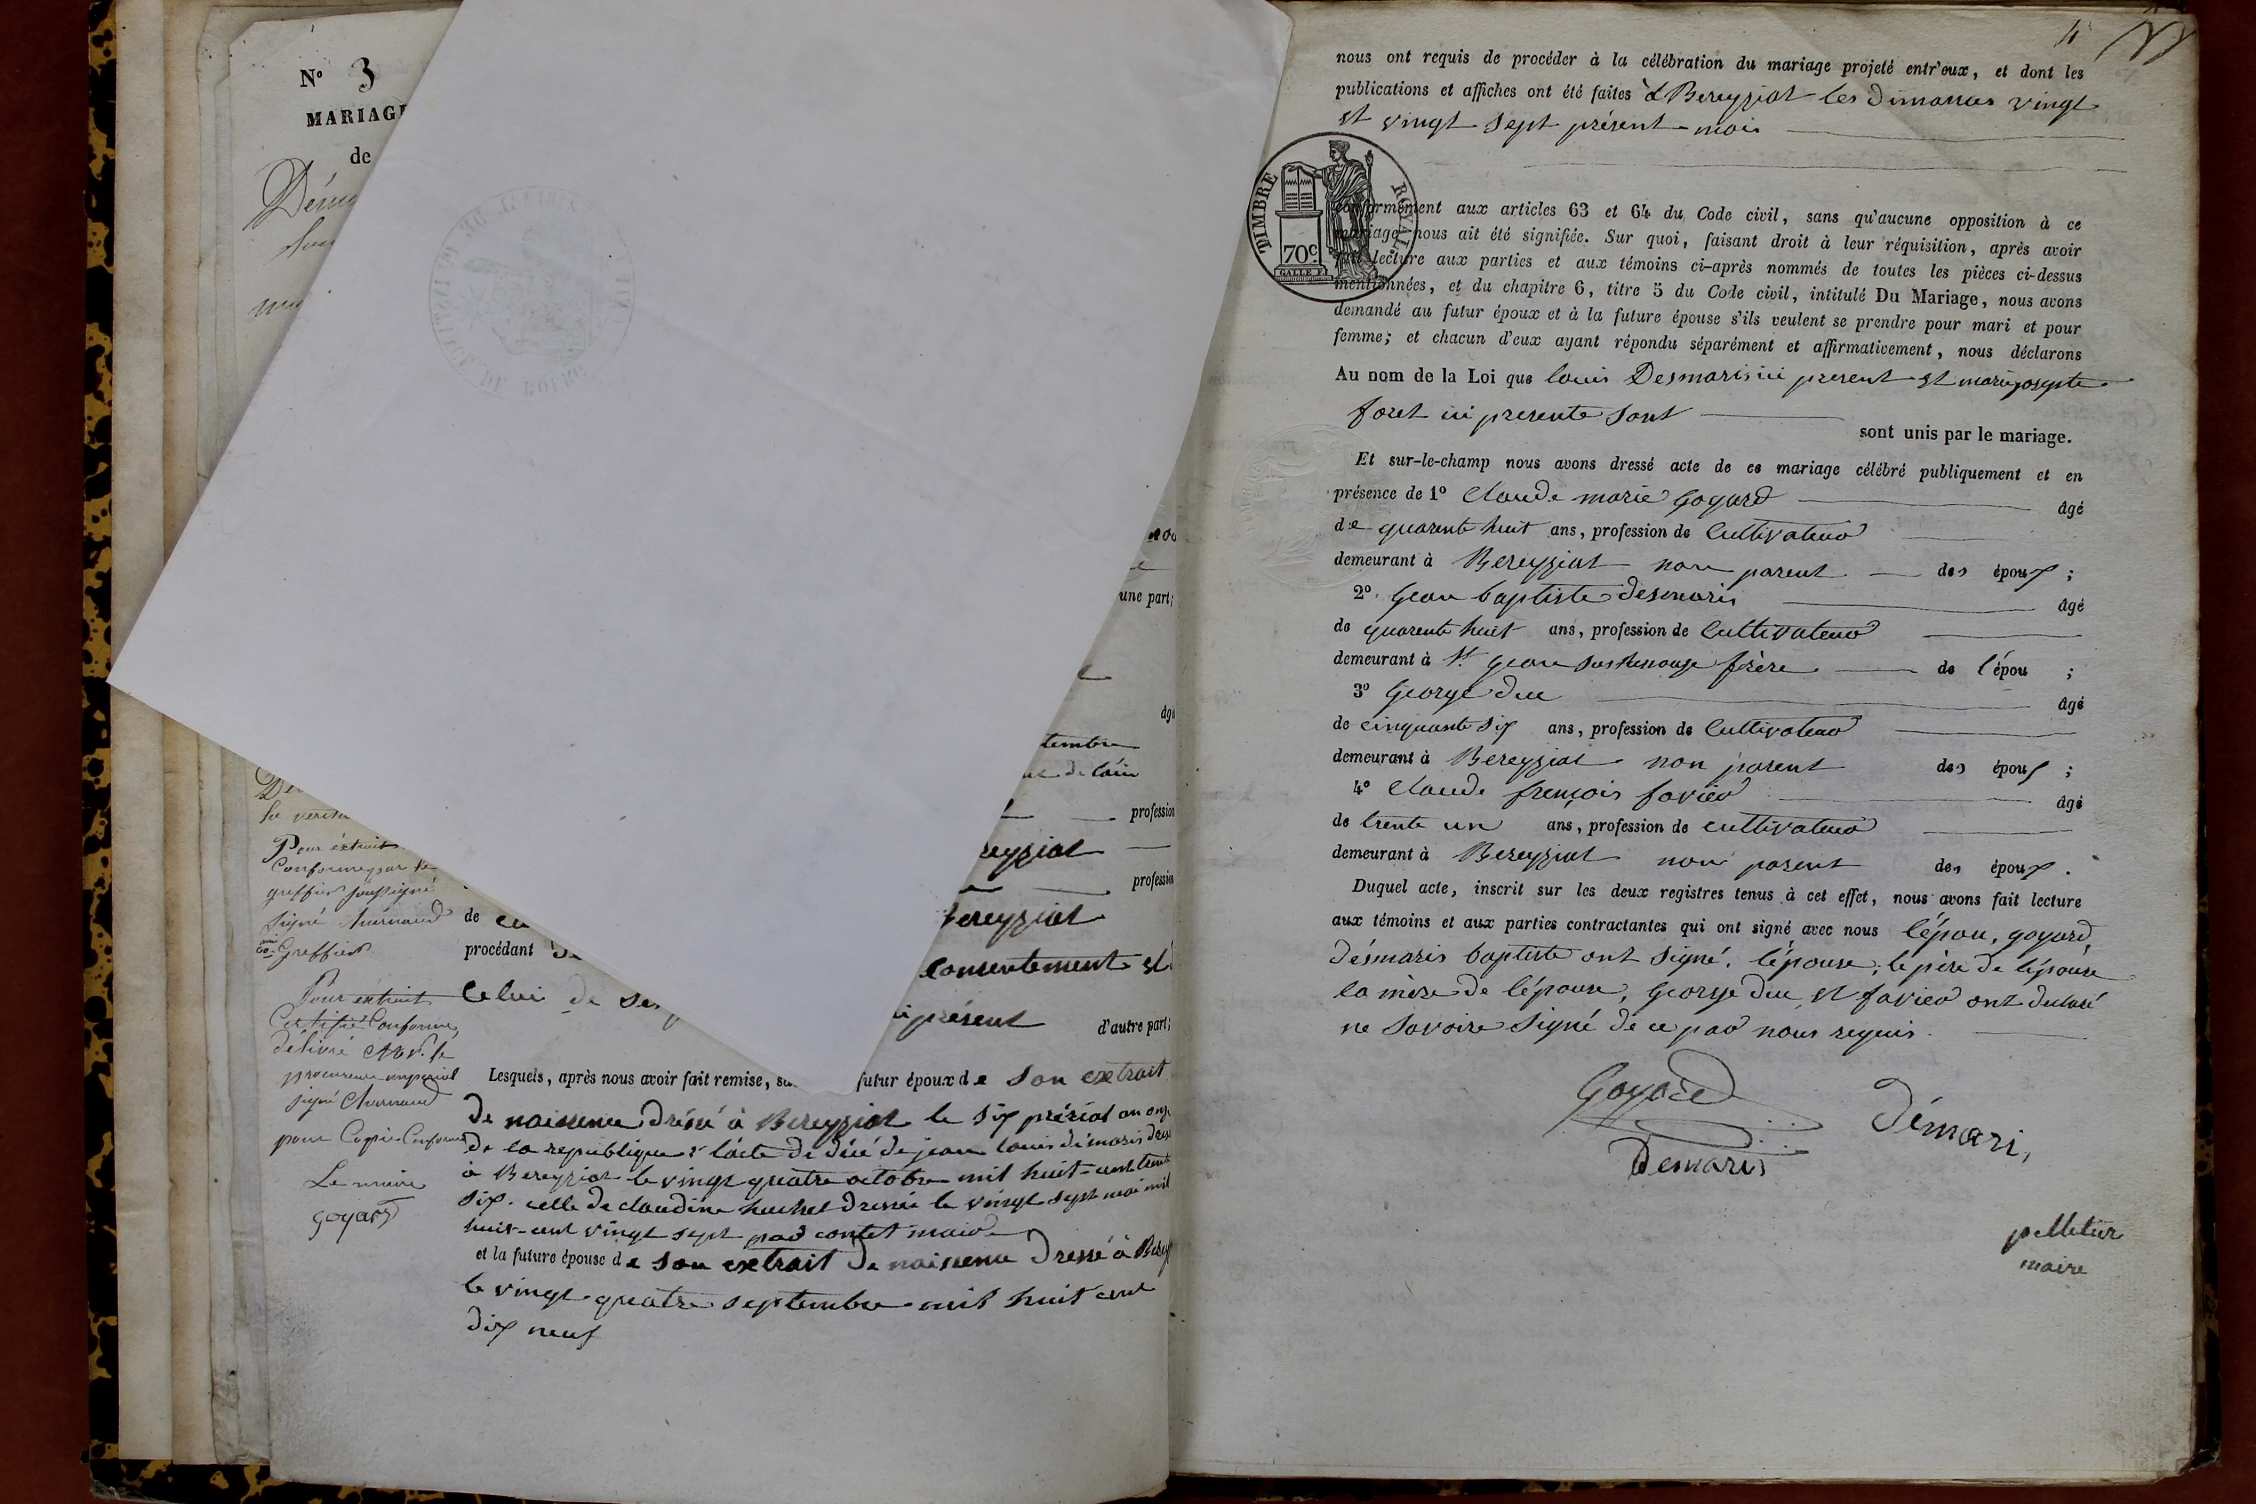 N° 3
MARIAGE
de
une part;
âgé
tembre
profession
Bereyziat
profession
de
Bereyziat
procédant
consentement et
Celui de
présent
d'autre part;
Pour extrait
Conforme par le
greffier soussigné
signé
Greffier
Pour extrait
Certifié Conforme
délivré
procureur impérial
signé
pour Copie Conforme
Le maire
goyard
Lesquels, après nous avoir fait remise, futur époux de son extrait
de naissence dréssé à Bereyziat le six prérial an onze
de la republique; l'acte de décé de jean louis démaris dressé
à Bereyziat le vingt quatre octobre mil huit-cent trente
six. celle de claudine huchet dressée le vingt sept mai mil
huit-cent vingt sept
et la future épouse de son extrait de naissence dressé à
le vingt quatre septembre mil huit cent
dix neuf
4
nous ont requis de procéder à la célébration du mariage projeté entr'eux, et dont les
publications et affiches ont été faites à Bereyziat les dimances vingt
et vingt sept présent mois
TIMBRE ROYAL
70c
conformément aux articles 63 et 64 du Code civil, sans qu'aucune opposition à ce
mariage nous ait été signifiée. Sur quoi, faisant droit à leur réquisition, après avoir
fait lecture aux parties et aux témoins ci-après nommés de toutes les pièces ci-dessus
mentionnées, et du chapitre 6, titre 5 du Code civil, intitulé Du Mariage, nous avons
demandé au futur époux et à la future épouse s'ils veulent se prendre pour mari et pour
femme; et chacun d'eux ayant répondu séparément et affirmativement, nous déclarons
Au nom de la Loi que louis Desmaris ici present et marie josepte
foret ici presente sont
sont unis par le mariage.
Et sur-le-champ nous avons dressé acte de ce mariage célébré publiquement et en
présence de 1° Claude marie Goyard âgé
de quarente huit ans, profession de Cultivateur
demeurant à Bereyziat non parent des époux;
2° Jean baptiste desmaris âgé
de quarente huit ans, profession de Cultivateur
demeurant à St jean frère de l'épou;
3° George duc âgé
de cinquante six ans, profession de Cultivateur
demeurant à Bereyziat non parent des époux;
4° Claude françois favier âgé
de trente un ans, profession de cultivateur
demeurant à Bereyziat non parent des époux.
Duquel acte, inscrit sur les deux registres tenus à cet effet, nous avons fait lecture
aux témoins et aux parties contractantes qui ont signé avec nous l'épou, goyard,
désmaris baptiste ont signé. l'épouse, le père de l'épouse
la mère de l'épouse, George duc et favier ont déclaré
ne savoire signé de ce par nous requis.
Goyard
Démari,
Demaris
pelletier
maire